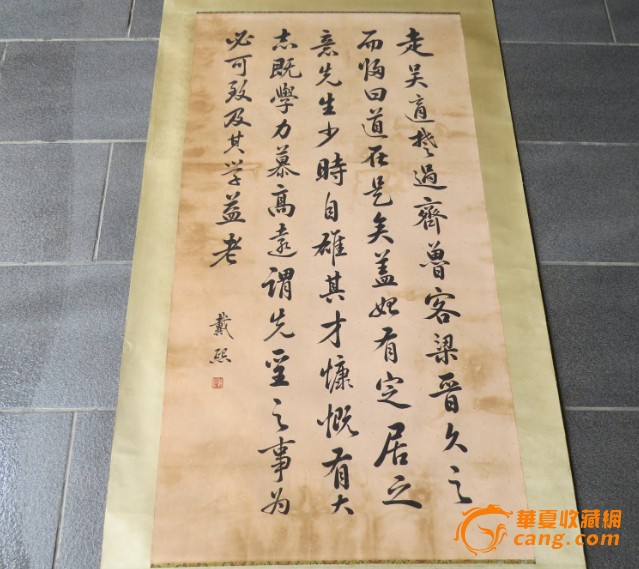 走吴適楚過齊魯客梁晋久之
而悔曰道在是矣盖始有定居之
意先生少時自雄其才慷慨有大
志既學力慕高遠謂先聖之事為
必可致及其学益老
戴熙
華夏收藏網
cang.com